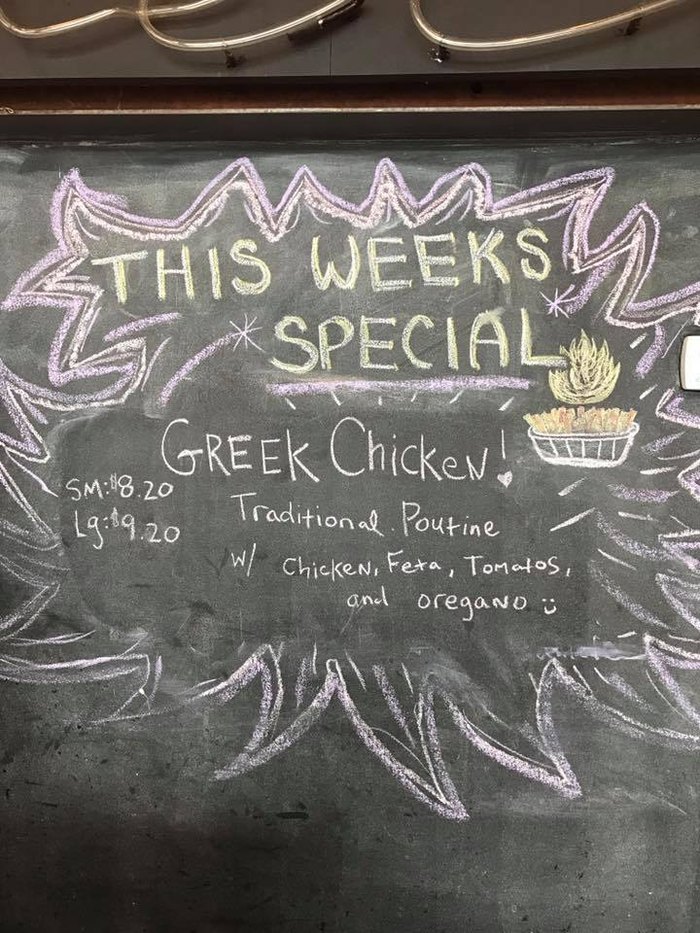 THIS WEEKS
SPECIAL
GREEK Chicken!
SM: $8.20
Lg: $9.20
Traditional Poutine
w/ Chicken, Feta, Tomatos,
and oregano